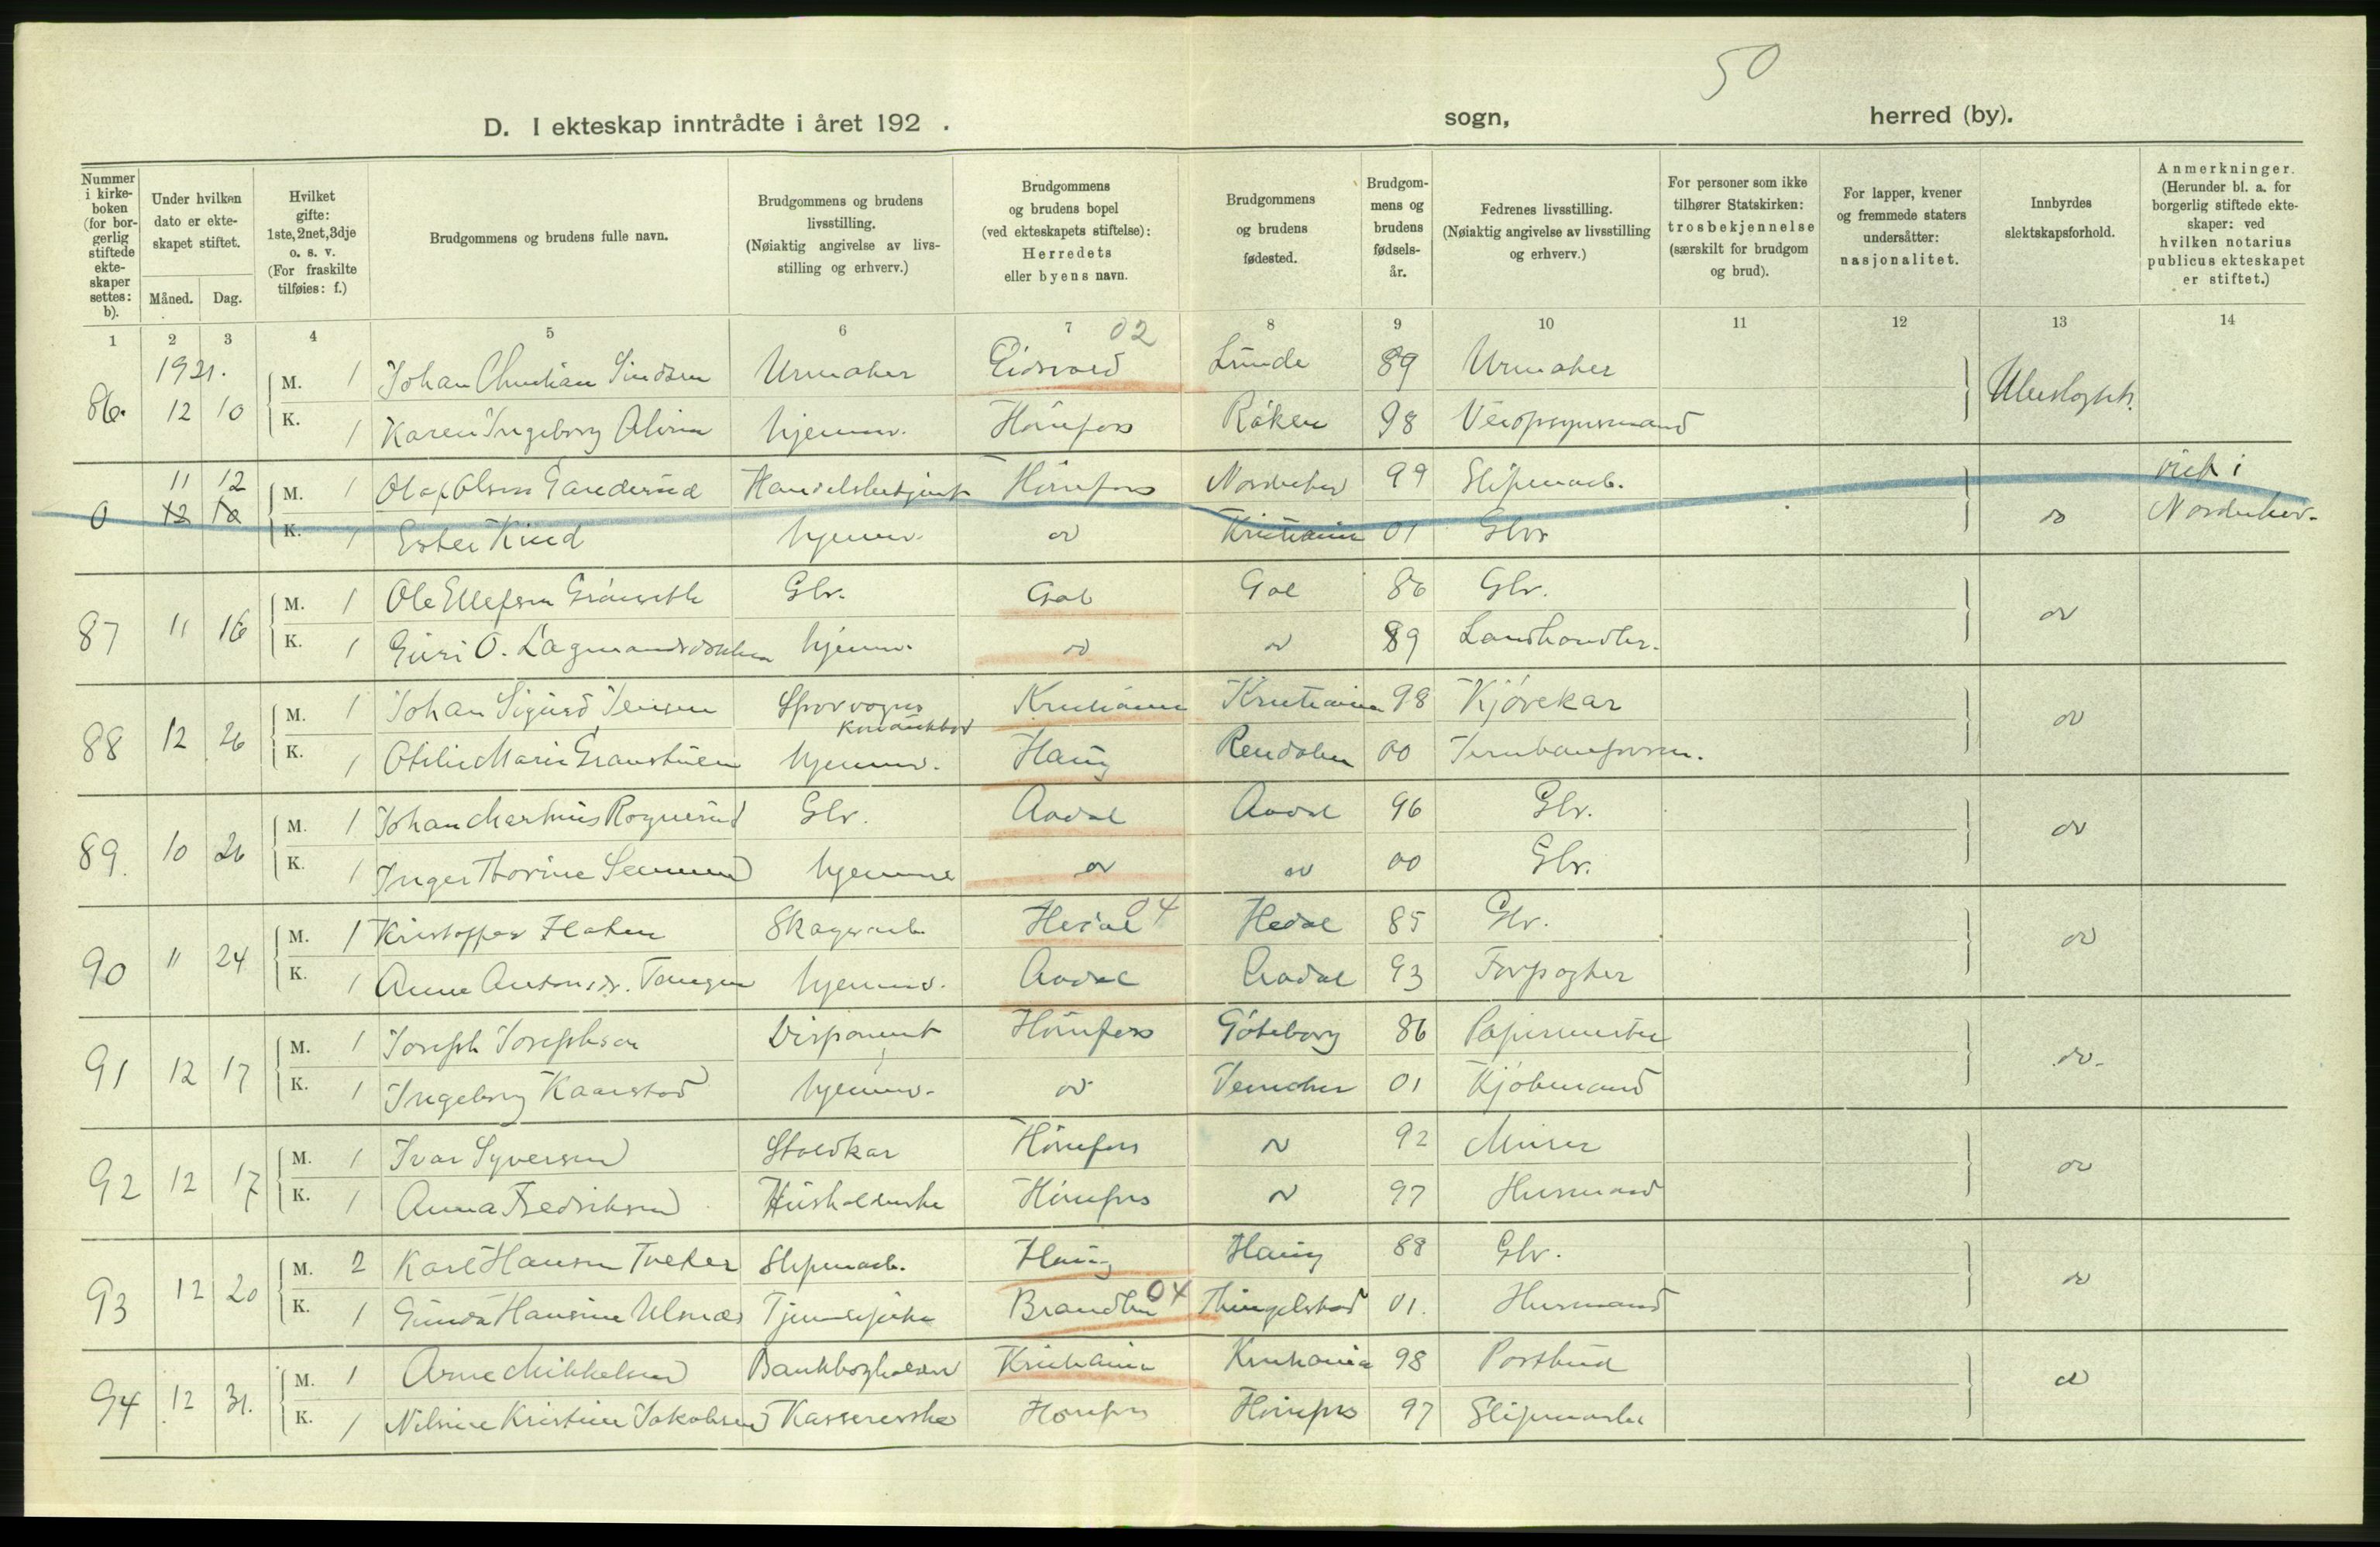 50
D. I ekteskap inntrådte i året 192 . sogn, herred (by).
Nummer i kirke-boken (for bor-gerlig stiftede ekte-skaper settes: b).
Under hvilken dato er ekte-skapet stiftet.
Måned. Dag.
Hvilket gifte: 1ste, 2net, 3dje o. s. v. (For fraskilte tilføies: f.)
Brudgommens og brudens fulle navn.
Brudgommens og brudens livsstilling. (Nøiaktig angivelse av livs-stilling og erhverv.)
Brudgommens og brudens bopel (ved ekteskapets stiftelse): Herredets eller byens navn.
Brudgommens og brudens fødested.
Brudgom-mens og brudens fødsels-år.
Fedrenes livsstilling. (Nøiaktig angivelse av livsstilling og erhverv.)
For personer som ikke tilhører Statskirken: trosbekjennelse (særskilt for brudgom og brud).
For lapper, kvener og fremmede staters undersåtter: nasjonalitet.
Innbyrdes slektskapsforhold.
Anmerkninger. (Herunder bl. a. for borgerlig stiftede ekte-skaper: ved hvilken notarius publicus ekteskapet er stiftet.)
1 2 3 4 5 6 7 8 9 10 11 12 13 14
02
1921.
86. 12 10 M. 1 Johan Christian Urmaker Eidsvold Lunde 89 Urmaker
K. 1 Karen Ingeborg hjemmv. Hønefoss Røken 98 98
0 11 12 M. 1 Olaf Olsen Handelsbetjent Hønefoss Norderhov 99 Sliperiarb. viet i
12 10 K. 1 Ester Kind hjemmv. do Kristiania 01 Gbr do Norderhov.
87 11 16 M. 1 Ole Ellefsen Gbr. Gol Gol 86 Gbr. do
K. 1 Guri O. hjemmv. do do 89 Landhandler.
88 12 26 M. 1 Johan Sigurd Jensen Sporvogns Kristiania Kristiania 98 Kjørekar do
konduktør
K. 1 Otilie Marie hjemmv. Haug Rendalen 00
89. 10 26 M. 1 Johan Martinius Rognerud Gbr. Aadal Aadal 96 Gbr. do
K. 1 Inger Thorine hjemme do do 00 Gbr.
90 11 24 M. 1 Kristoffer Haken Skogsarb. Hedal 04 Hedal 85 Gbr. do
K. 1 Anne Antonsdr. Tangen hjemmv. Aadal Aadal 93
91 12 17 M. 1 Joseph Josephson Disponent Hønefoss Göteborg 86 Papirmester do.
K. 1 Ingeborg Kaarstad hjemmv. do Jevnaker 01 Kjøbmand
92 12 17 M. 1 Ivar Syversen Staldkar Hønefoss do 92 Murer do
K. 1 Anna Fredriksen Husholderske Hønefoss do 97 Husmand
93 12 20 M. 2 Karl Hansen Tveter Sliperiarb. Haug Haug 88 Gbr. do
K. 1 Gunda Hansine Ulsnæs Tjenestepike Brandbu 04 Thingelstad 01. Husmand
94 12 31. M. 1 Arne Mikkelsen Bankbogholder Kristiania Kristiania 98 Postbud do
K. 1 Nilsine Kristine Jakobsen Kassererske Hønefos Hønefos 97 Sliperiarbei